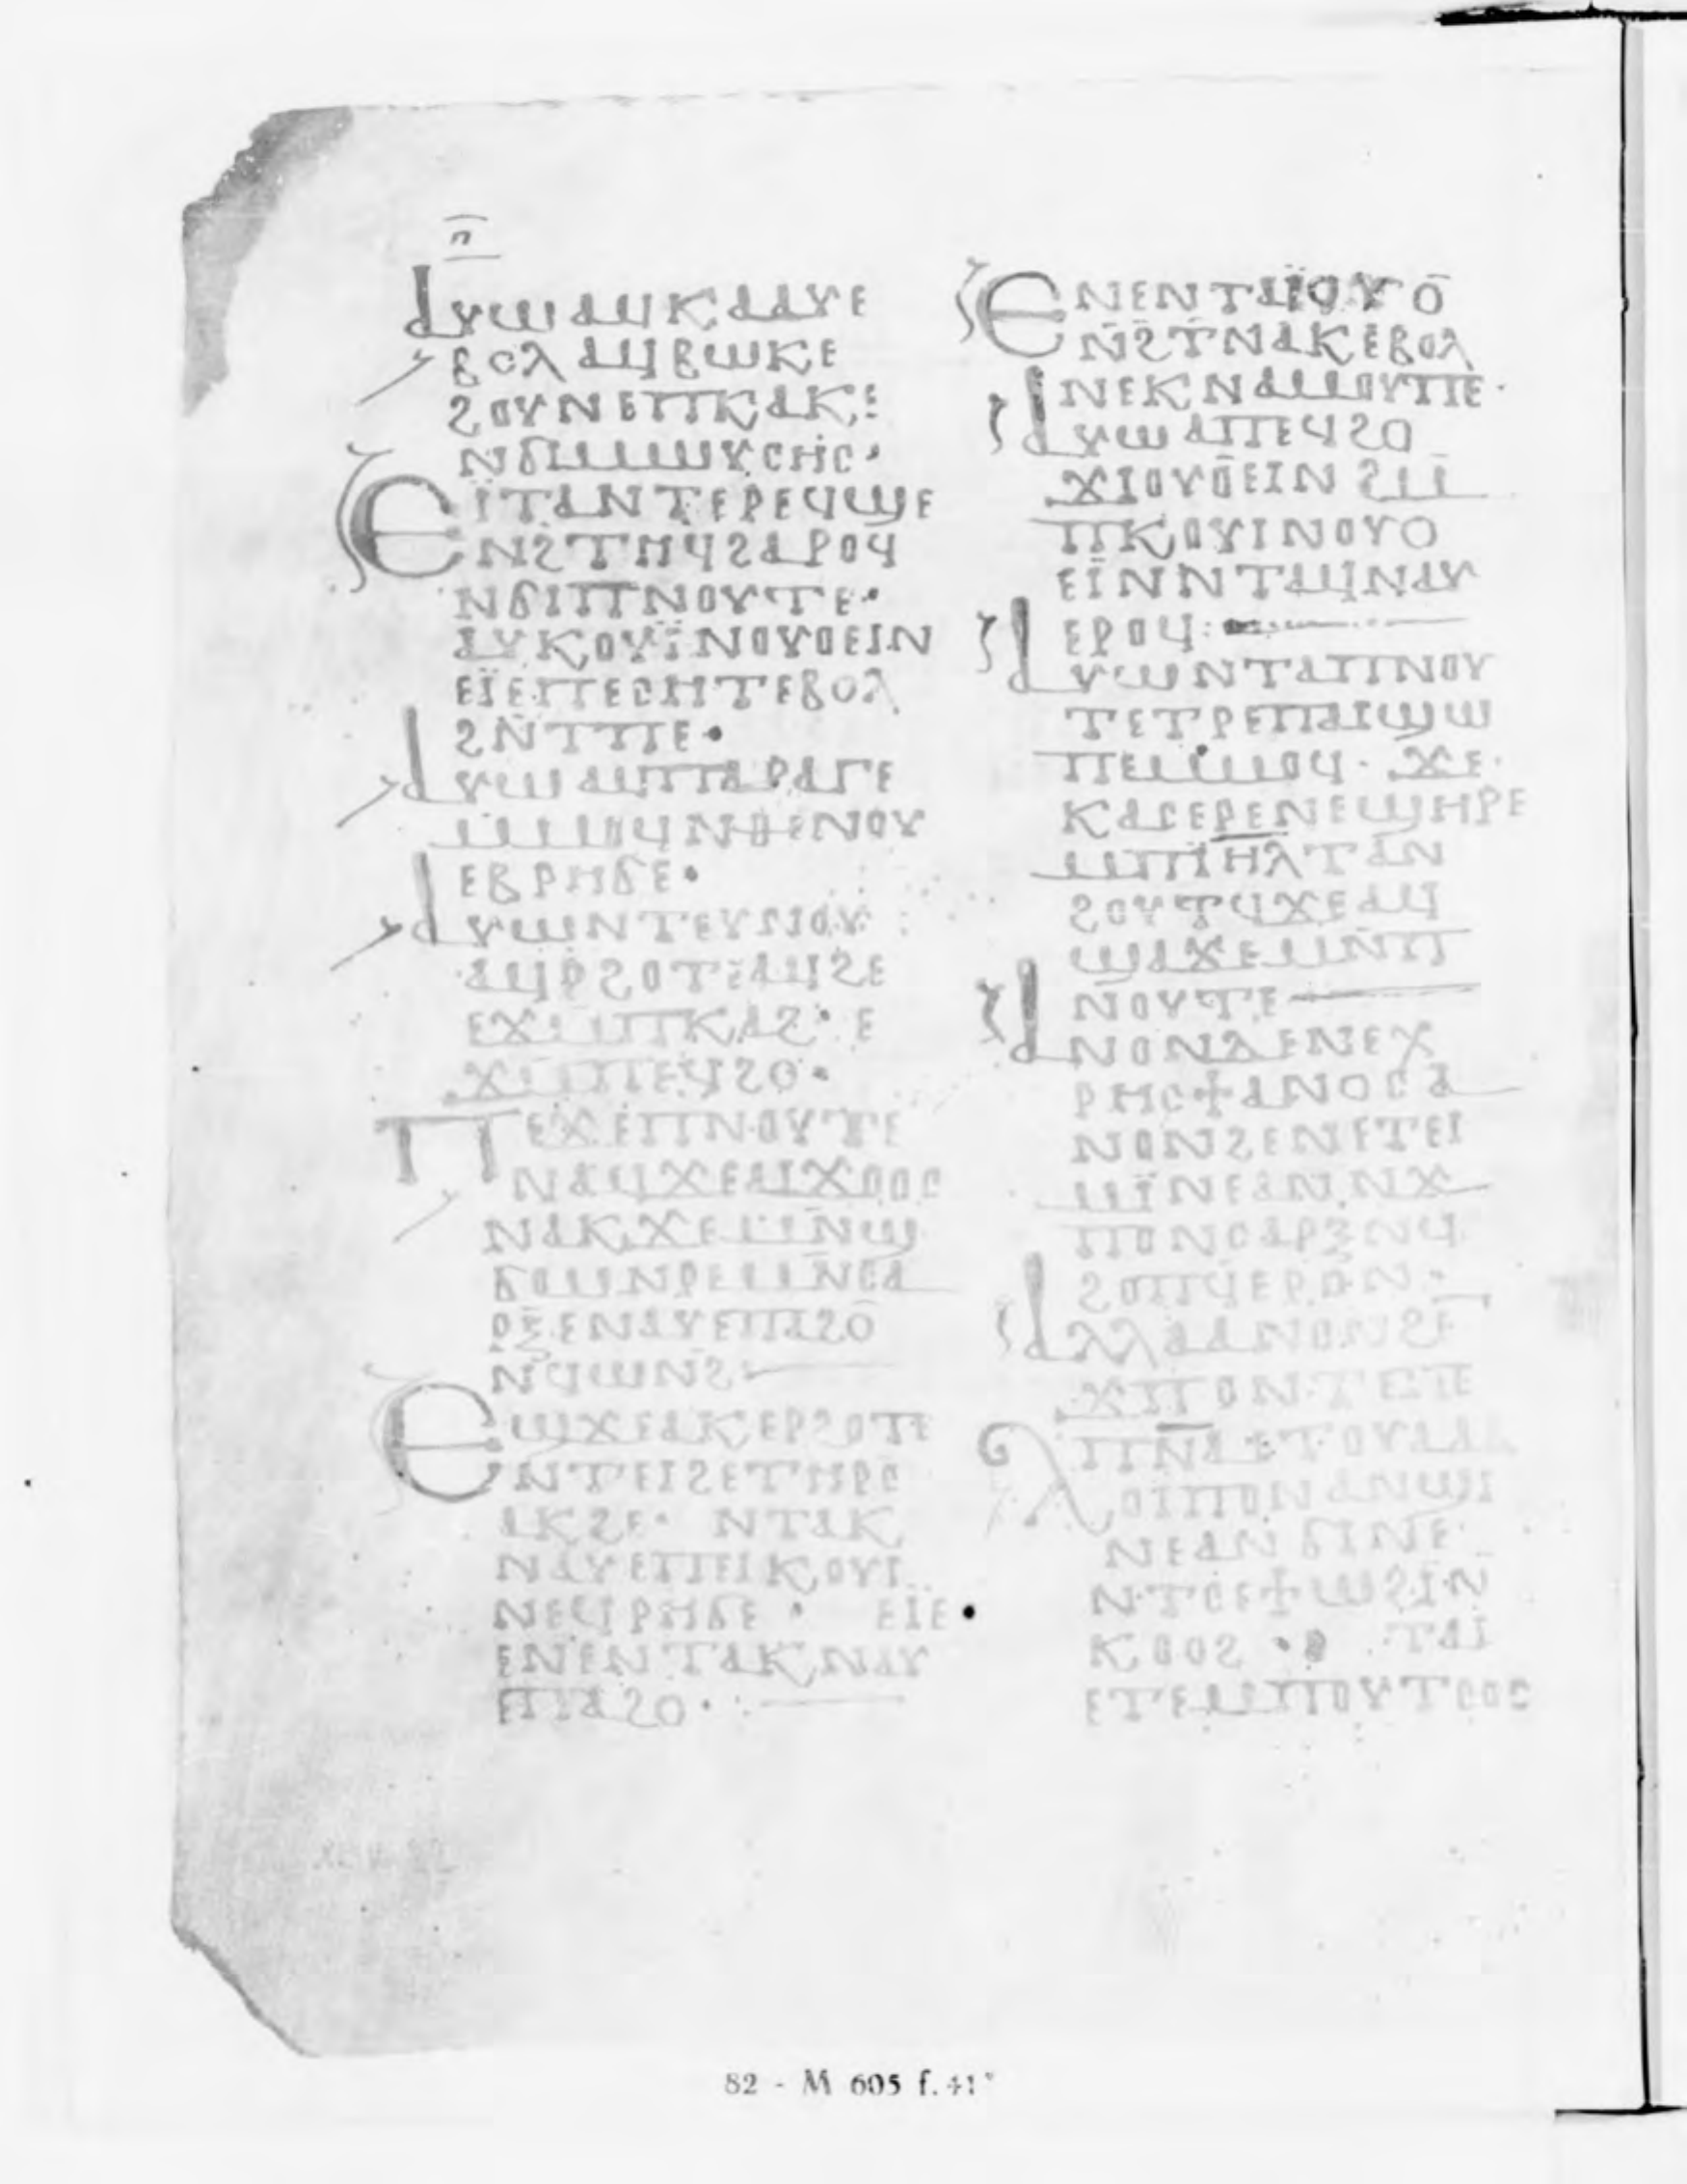 ⲡ̅
ⲁⲩⲱ ⲁϥⲕⲁⲁⲩ ⲉ
ⲃⲟⲗ ⲁϥⲃⲱⲕ ⲉ
ϩⲟⲩⲛ ⲉⲡⲕⲁⲕⲉ
ⲛϭⲓⲙⲱⲩⲥⲏⲥ·
ⲉⲓⲧⲁ ⲛⲧⲉⲣⲉϥϣⲉ
ⲛϩⲧⲏϥ ϩⲁⲣⲟϥ
ⲛϭⲓⲡⲛⲟⲩⲧⲉ·
ⲁⲩⲕⲟⲩⲓ ⲛⲟⲩⲟⲉⲓⲛ
ⲉⲓ ⲉⲡⲉⲥⲏⲧ ⲉⲃⲟⲗ
ϩⲛ̄ⲧⲡⲉ·
ⲁⲩⲱ ⲁϥⲡⲁⲣⲁⲅⲉ
ⲙⲙⲟϥ ⲛⲑⲉ ⲛⲟⲩ
ⲉⲃⲣⲏϭⲉ·
ⲁⲩⲱ ⲛⲧⲉⲩⲛⲟⲩ
ⲁϥⲣϩⲟⲧⲉ ⲁϥϩⲉ
ⲉϫⲙⲡⲕⲁϩ· ⲉ
ϫⲙⲡⲉϥϩⲟ·
ⲡⲉϫⲉⲡⲛⲟⲩⲧⲉ
ⲛⲁϥ ϫⲉ ⲁⲓϫⲟⲟⲥ
ⲛⲁⲕ ϫⲉ ⲙⲛ̄ϣ
ϭⲟⲙ ⲛⲣⲉⲙⲛ̄ⲥⲁ
ⲣⲝ ⲉⲛⲁⲩ ⲉⲡⲁϩⲟ
ⲛϥⲱⲛϩ
ⲉϣϫⲉ ⲁⲕⲉⲣϩⲟⲧⲉ
ⲛⲧⲉⲓϩⲉ ⲧⲏⲣⲥ
ⲁⲕϩⲉ· ⲛⲧⲁⲕ
ⲛⲁⲩ ⲉⲡⲉⲓⲕⲟⲩⲓ
ⲛⲉϥⲣⲏϭⲉ· ⲉⲓⲉ·
ⲉⲛⲉⲛⲧⲁⲕⲛⲁⲩ
ⲉⲡⲁϩⲟ·
ⲉⲛⲉⲛⲧⲁⲓⲟⲩⲟ̄
ⲛϩⲧ ⲛⲁⲕ ⲉⲃⲟⲗ
ⲛⲉⲕⲛⲁⲙⲟⲩ ⲡⲉ·
ⲁⲩⲱ ⲁⲡⲉϥϩⲟ
ϫⲓⲟⲩⲟⲉⲓⲛ ϩⲙ
ⲡⲕⲟⲩⲓ ⲛⲟⲩⲟ
ⲉⲓⲛ ⲛⲧⲁϥⲛⲁⲩ
ⲉⲣⲟϥ:
ⲁⲩⲱ ⲛⲧⲁⲡⲛⲟⲩ
ⲧⲉ ⲧⲣⲉⲡⲁⲓ ϣⲱ
ⲡⲉ ⲙⲙⲟϥ· ϫⲉ·
ⲕⲁⲥ ⲉⲣⲉⲛⲉϣⲏⲣⲉ
ⲙⲡⲓⲏⲗ ⲧⲁⲛ
ϩⲟⲩⲧϥ ϫⲉ ⲁϥ
ϣⲁϫⲉ ⲙⲛ̄ⲡ
ⲛⲟⲩⲧⲉ
ⲁⲛⲟⲛ ⲇⲉ ⲛⲉⲭ
ⲣⲏⲥϯⲁⲛⲟⲥ ⲁ
ⲛⲟⲛϩⲉⲛⲉⲧⲉⲓ
ⲙⲓⲛⲉ ⲁⲛ ⲛϫ
ⲡⲟ ⲛⲥⲁⲣⲝ ⲛϥ
ϩⲟⲡϥ ⲉⲣⲟⲛ·
ⲁⲗⲗⲁ ⲁⲛⲟⲛϩⲉ
ϫⲡⲟ ⲛⲧⲉⲡⲉ
ⲡⲛ̅ⲁ ⲉⲧⲟⲩⲁⲁⲃ
ⲗⲟⲓⲡⲟⲛ ⲁⲛϣⲓ
ⲛⲉ ⲁⲛϭⲓⲛⲉ
ⲛⲧⲥⲉϯⲱϩ ⲓⲛ̄
ⲕⲟⲟϩ · ⲧⲁⲓ
ⲉⲧⲉⲙⲡⲟⲩⲧⲟⲟⲥ
82 - M 605 f. 41ᵛ